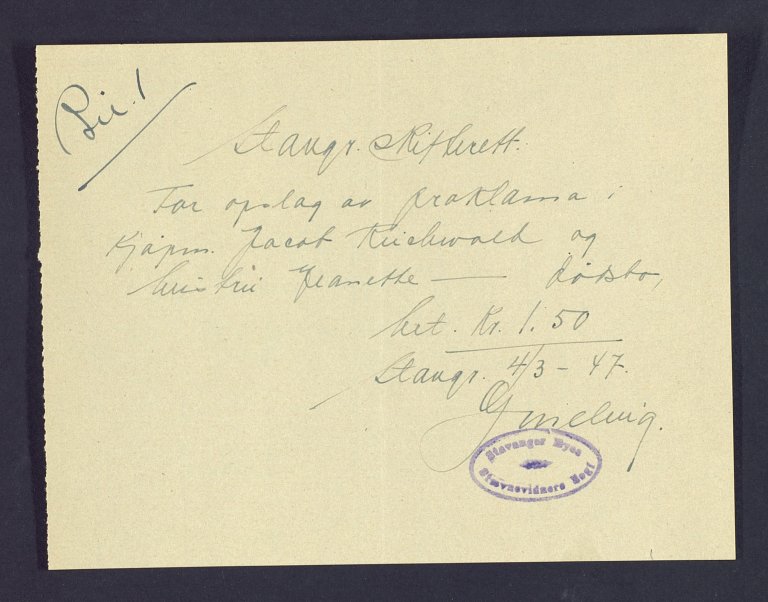 Bil. 1
Stavgr. Skifterett.
For opslag av proklama i
Kjøpm. Jacob Reichwald og
hustru Jeanette — dødsbo,
bet. Kr. 1.50
Stavgr. 4/3 - 47.
Stavanger Byes
Stævnevidners Regt